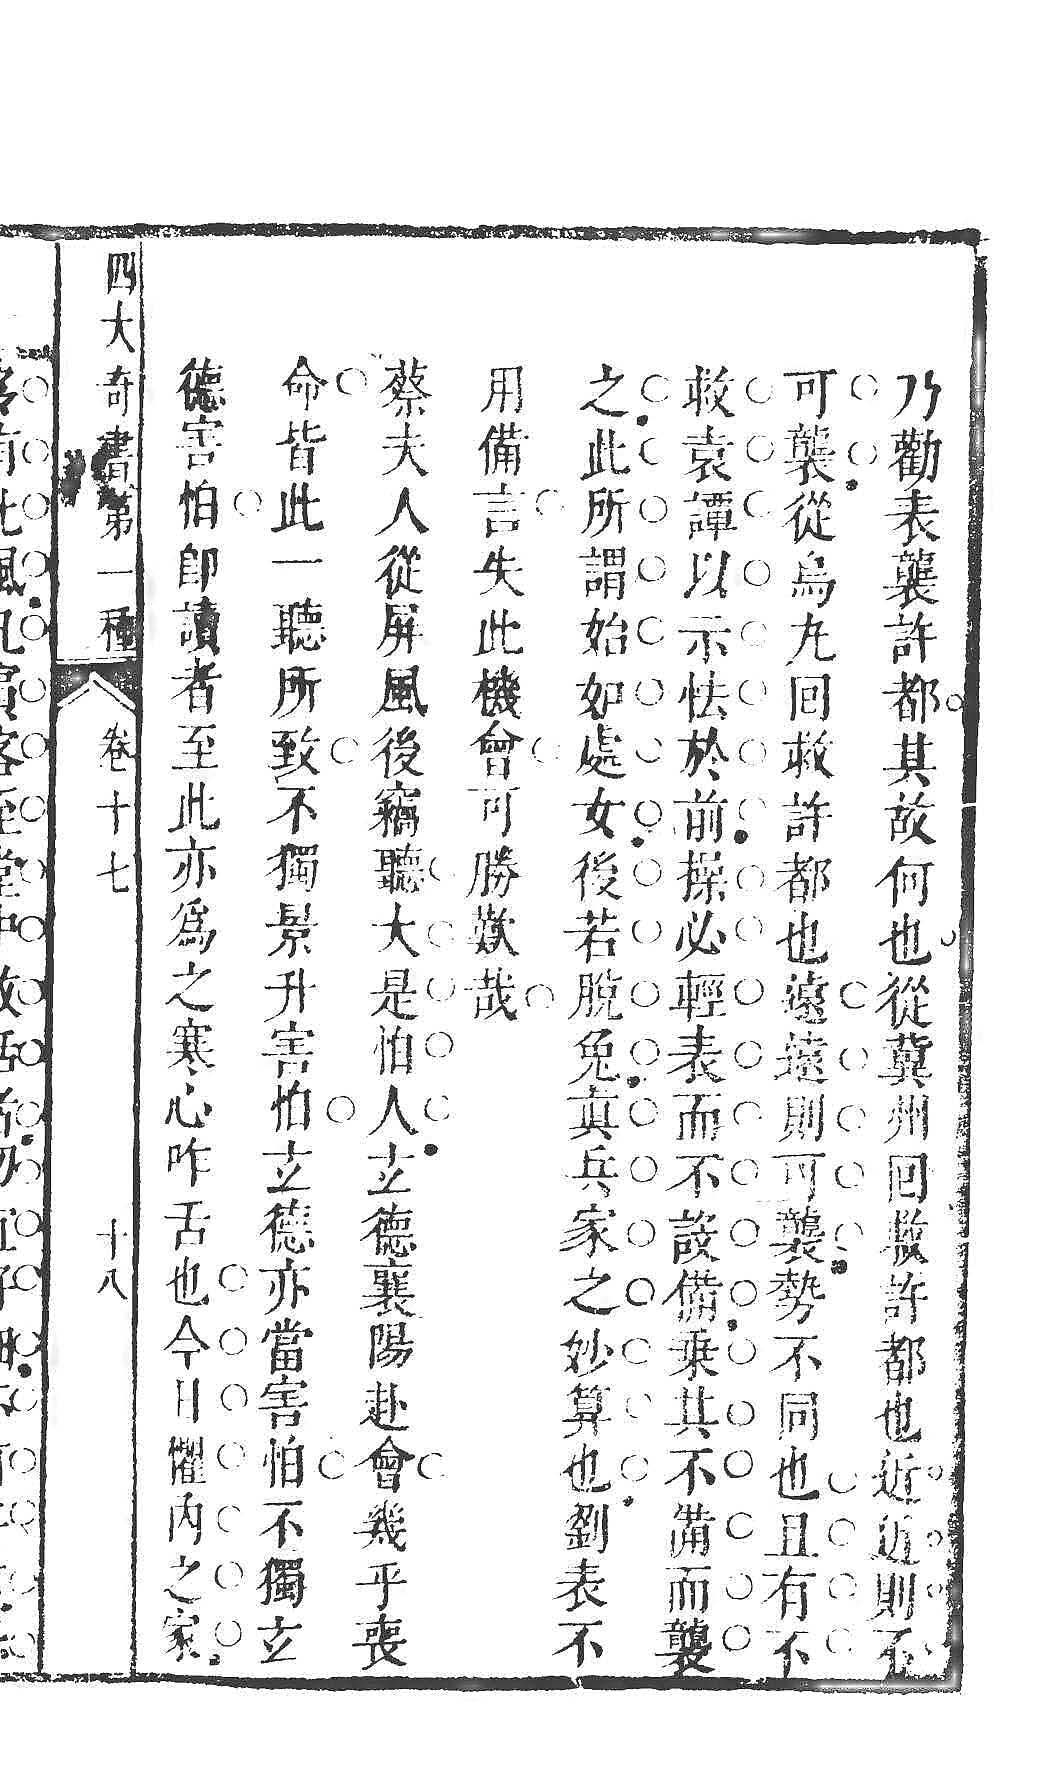 乃勸表襲許都其故何也從冀州回救許都也近近則不
可襲從烏丸回救許都也遠遠則可襲勢不同也且有不
救袁譚以示怯於前操必輕表而不設備乗其不備而襲
之此所謂始如處女後若脫兔真兵家之妙算也劉表不
用備言失此機會可勝歎哉
蔡夫人從屏風後竊聽大是怕人立德襄陽赴會幾乎喪
命皆此一聽所致不獨景升害怕立德亦當害怕不獨立
德害怕卽讀者至此亦爲之寒心咋舌也今日懼內之家
四大奇書第一種 卷十七 十八